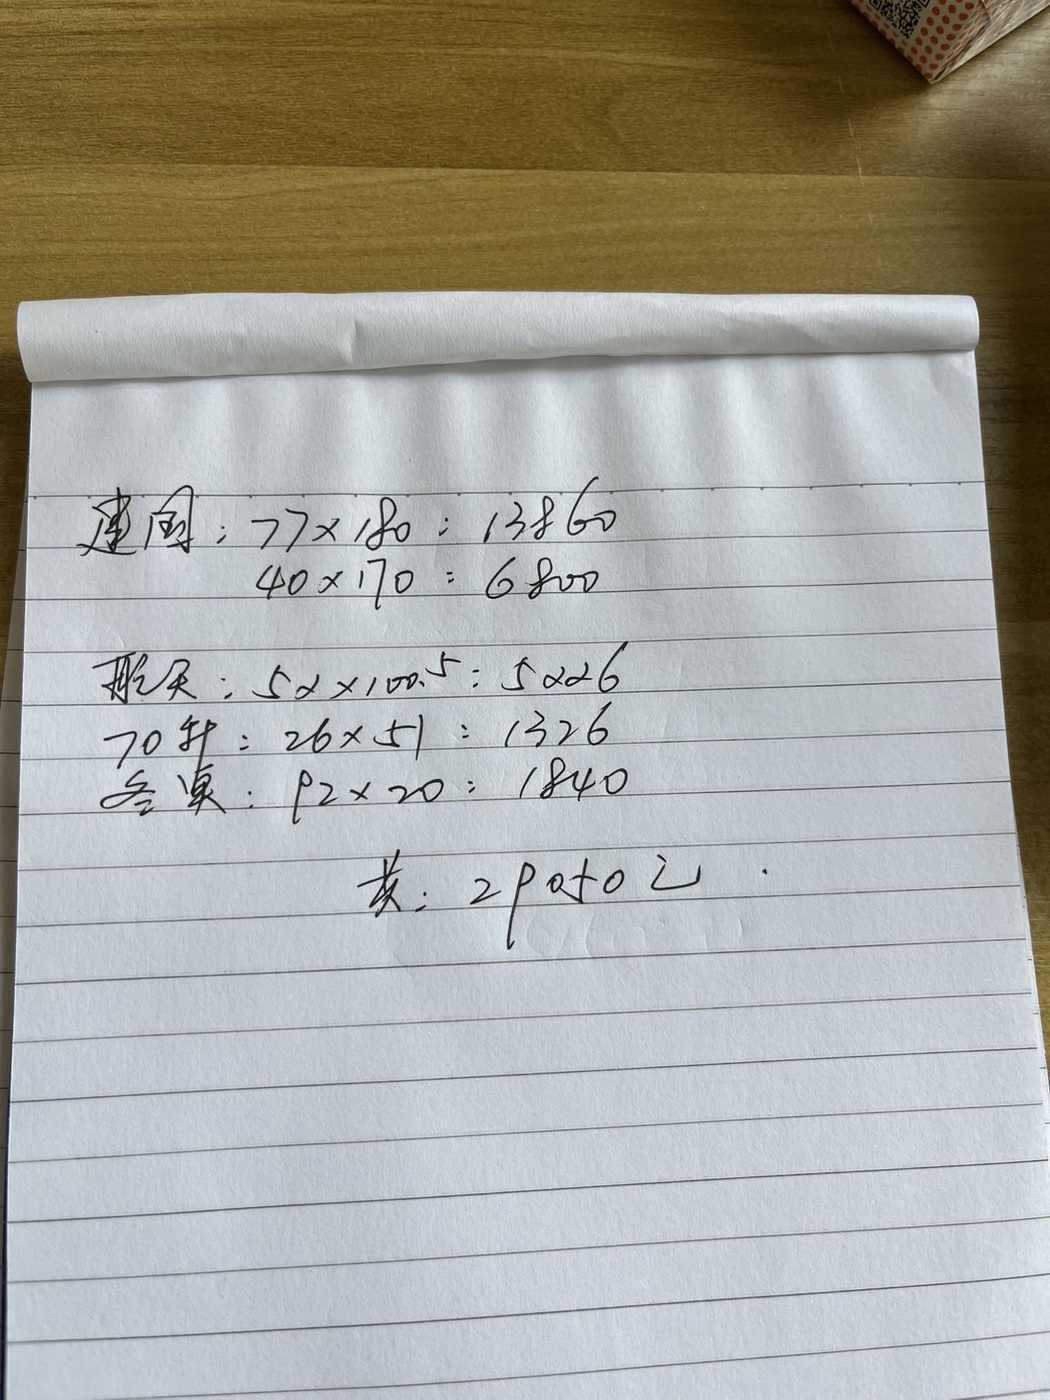 建国：77×180：13860
40×170：6800
形天：52×100.5：5226
70升：26×51：1326
冬真：92×20：1840
共：29050元.